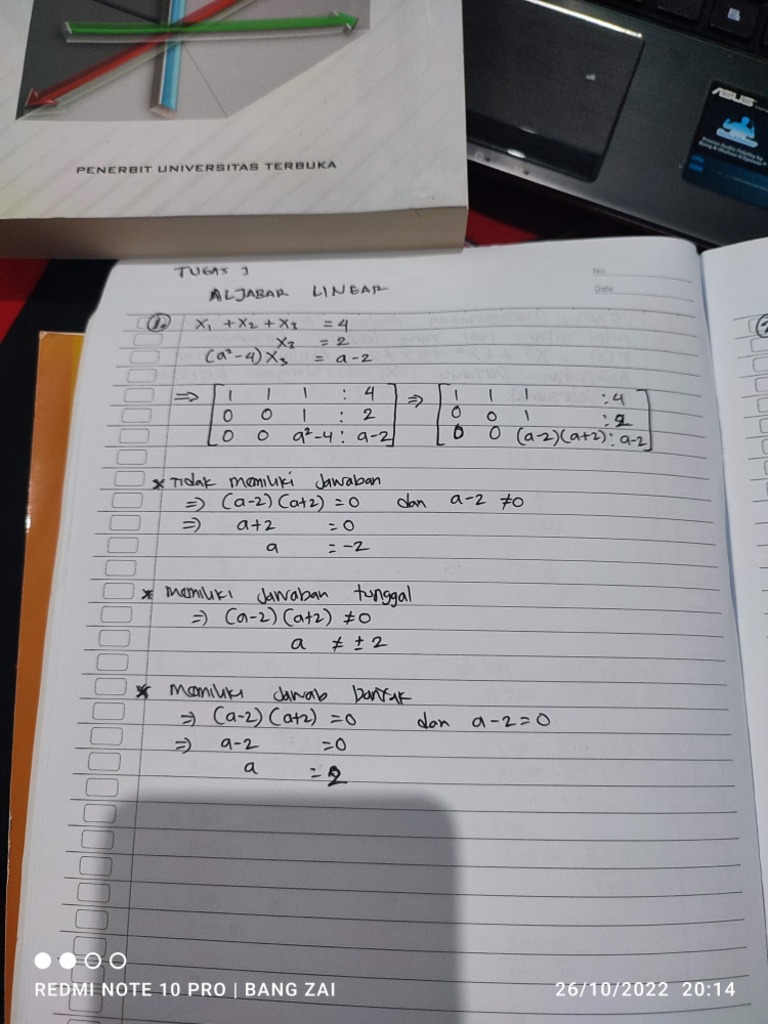 PENERBIT UNIVERSITAS TERBUKA
ASUS
TUGAS 3
ALJABAR LINEAR
No.
Date
1. x₁ + x₂ + x₃ = 4
x₃ = 2
(a²-4) x₃ = a-2
⇒ [ 1 1 1 : 4 ] ⇒ [ 1 1 1 : 4 ]
[ 0 0 1 : 2 ] [ 0 0 1 : 2 ]
[ 0 0 a²-4 : a-2 ] [ 0 0 (a-2)(a+2) : a-2 ]
* Tidak memiliki Jawaban
⇒ (a-2)(a+2) = 0 dan a-2 ≠ 0
⇒ a+2 = 0
a = -2
* Memiliki Jawaban tunggal
⇒ (a-2)(a+2) ≠ 0
a ≠ ± 2
* Memiliki Jawab banyak
⇒ (a-2)(a+2) = 0 dan a-2 = 0
⇒ a-2 = 0
a = 2
REDMI NOTE 10 PRO | BANG ZAI
26/10/2022 20:14